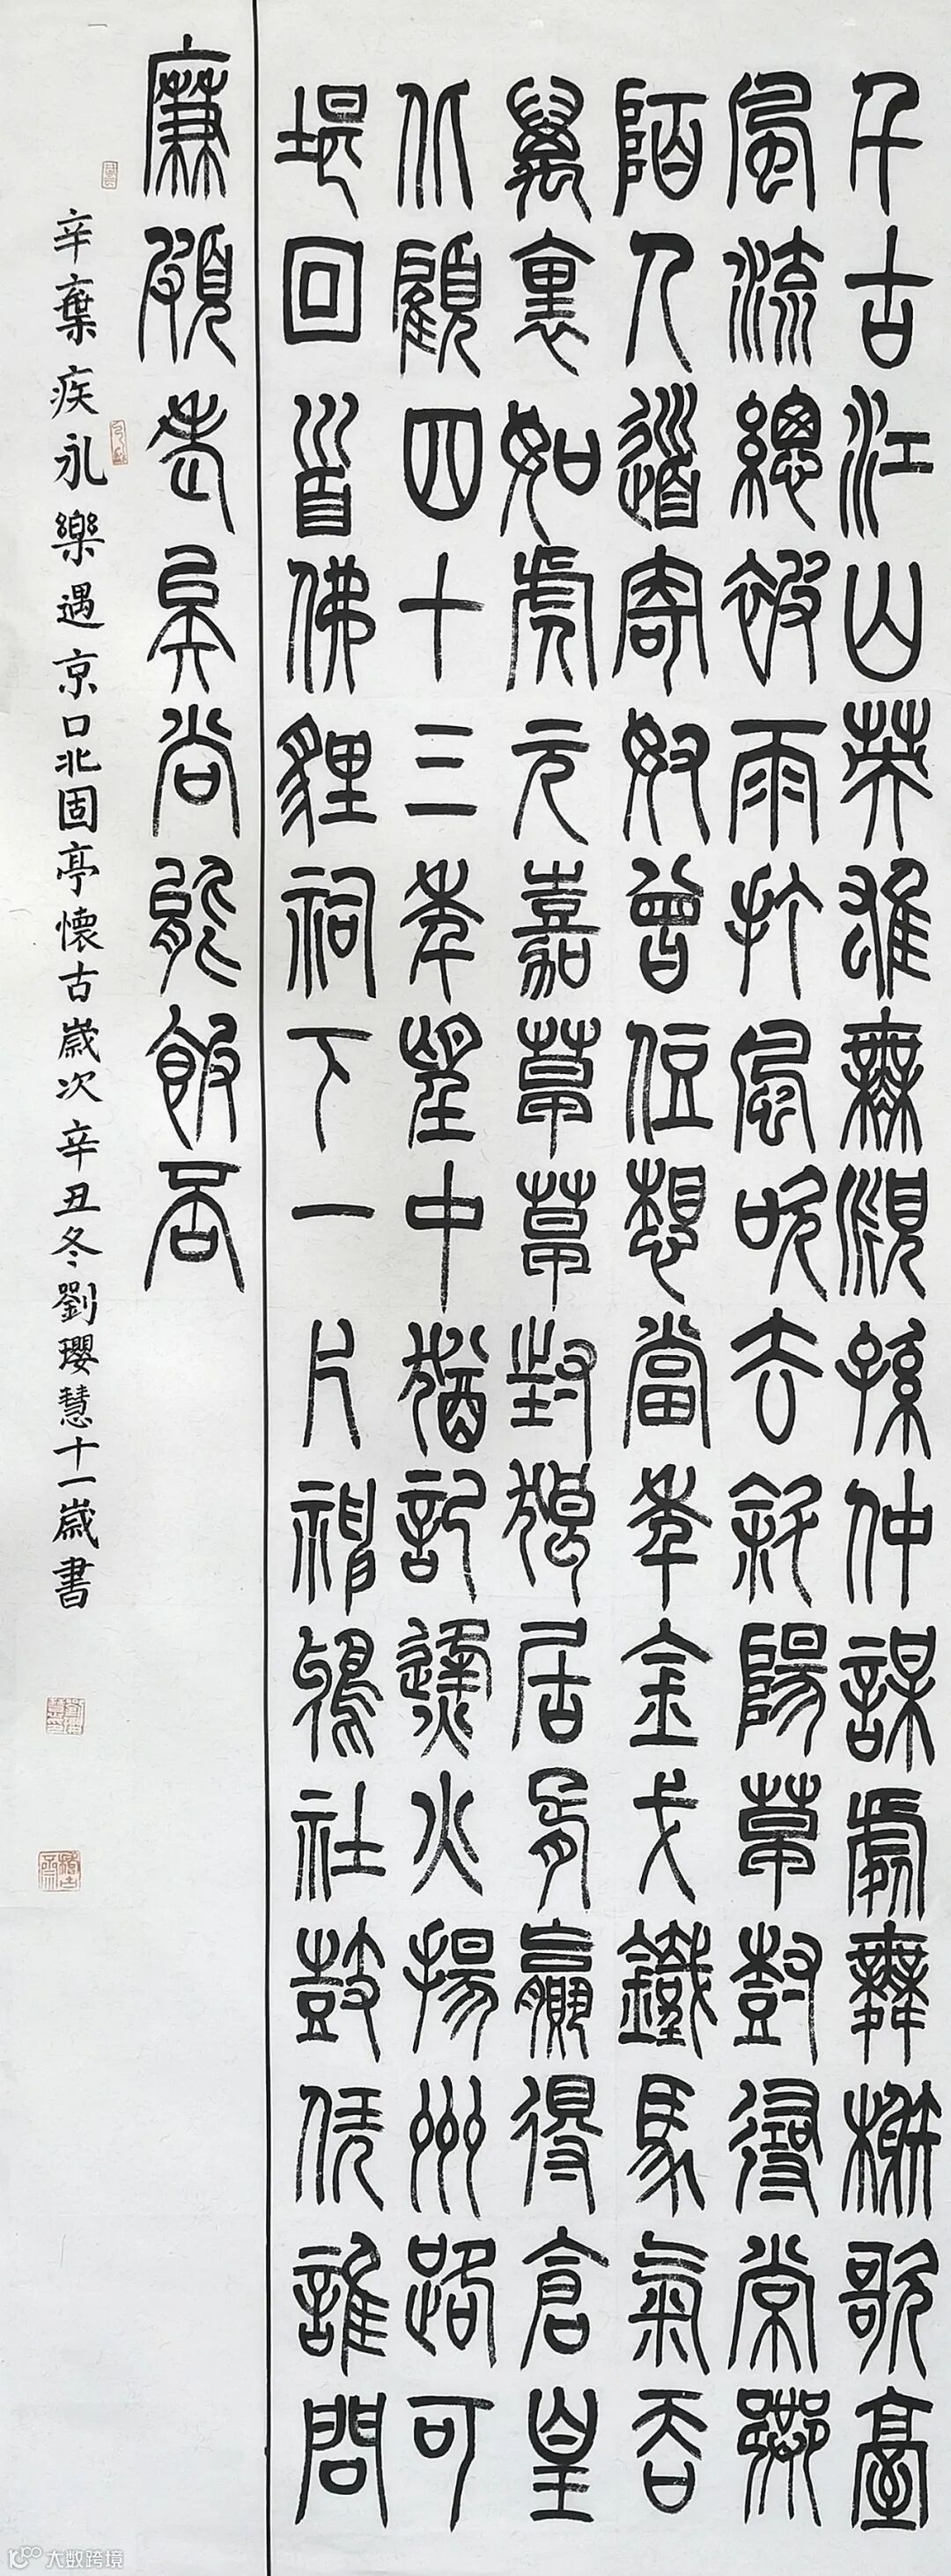 千古江山英雄無覓孫仲謀處舞榭歌臺
風流總被雨打風吹去斜陽草樹尋常巷
陌人道寄奴曾住想當年金戈鐵馬氣吞
萬裏如虎元嘉草草封狼居胥贏得倉皇
北顧四十三年望中猶記烽火揚州路可
堪回首佛貍祠下一片神鴉社鼓凭誰問
廉頗老矣尚能飯否
辛棄疾永樂遇京口北固亭懷古歲次辛丑冬劉瓔慧十一歲書
大数跨境